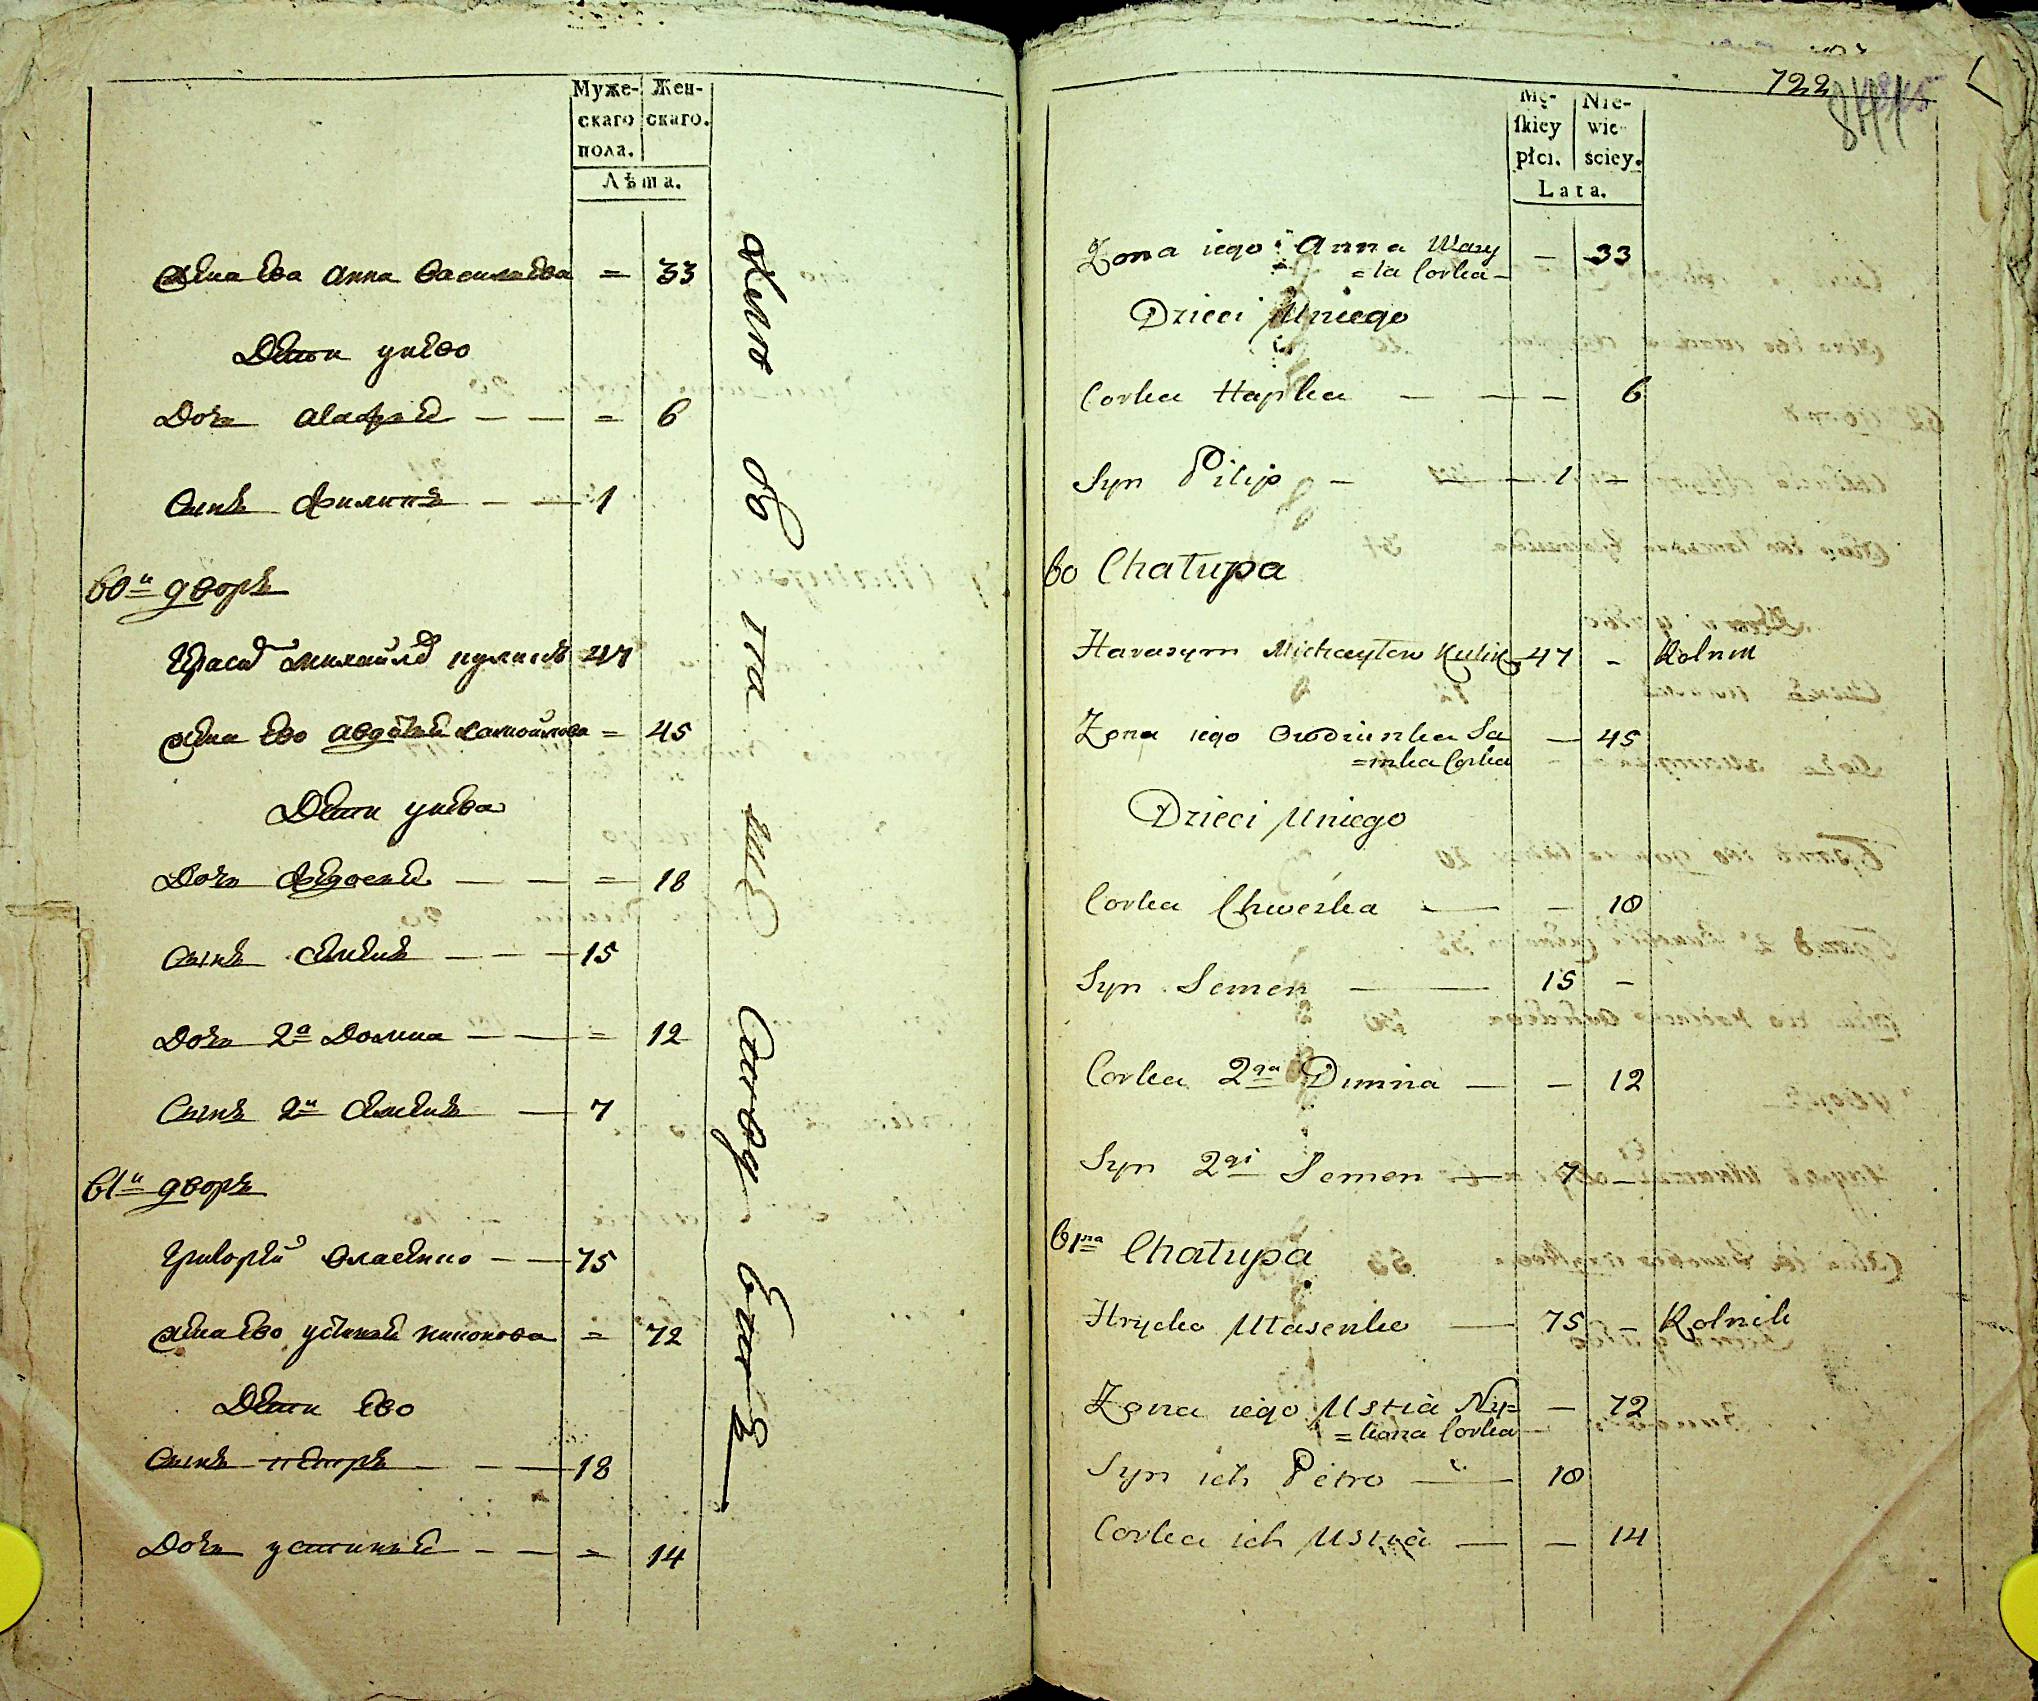 Муже-
скаго
пола.
Жен-
скаго.
Лѣта.
жена Ево Анна Василиева = 33
Дети унево
Дочь Агафия — — = 6
Сынъ Филипъ — — 1
60й дворъ
Герасим Михайлов кулик 47
жена Ево Авдотия Самойлова = 45
Дети унева
Дочь Федосия — — = 18
Сынъ Семенъ — — — 15
Дочь 2а Домна — — = 12
Сынъ 2й Семенъ — 7
61й дворъ
Григорий Власенко — — 75
жена Ево Устиния Никонова = 72
Дети Ево
Сынъ Петръ — — — 18
Дочь Устиния — — = 14
722
Mę-
skiey
płci.
Nie-
wie-
sciey.
Lata.
Zona iego Anna Wasy — 33
=la Corka —
Dzieci Uniego
Corka Hapka — — — 6
Syn Pilip — — — 1 —
60 Chatupa
Harasym Michayłow Kulik 47 — Rolnik
Zona iego Owdziunka Sa — 45
=mka Corka
Dzieci Uniego
Corka Chweska — — 18
Syn Semen — 15 —
Corka 2ga Dumna — — 12
Syn 2gi Semen — 7 —
61na Chatupa
Hrycko Ułasenko — 75 — Rolnik
Zona iego Ustia Ny= — 72
=kona Corka
Syn ich Petro — 18
Corka ich Ustia — — 14